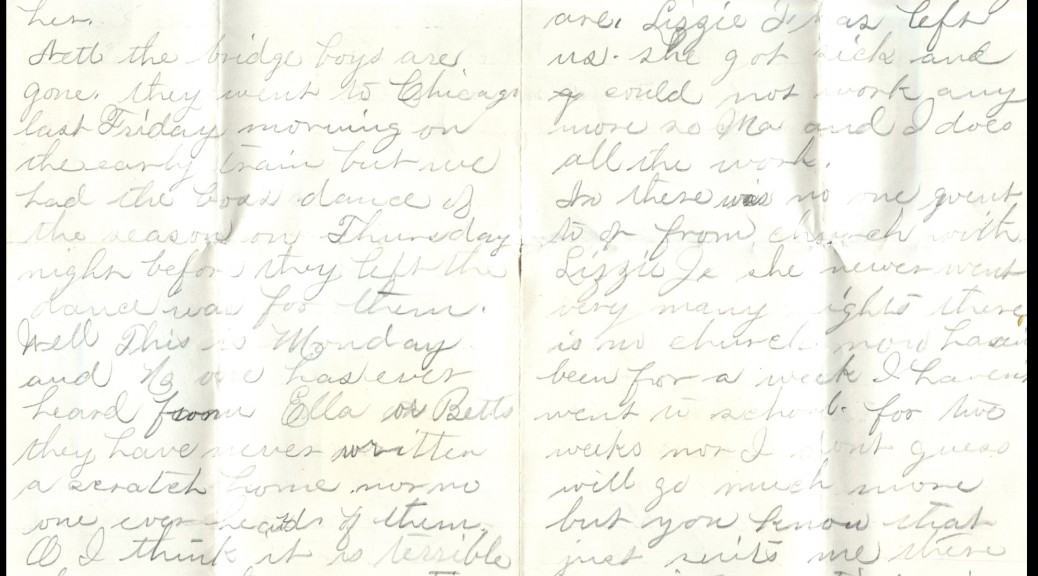 her.
Well the bridge boys are
gone. they went to Chicago
last Friday morning on
the early train but we
had the boss dance of
the season on Thursday
night before they left the
dance was for them.
Well This is Monday
and No one has ever
heard from Ella or Betts
they have never written
a scratch home nor no
one ever heards of them.
O I think it is terrible
are. Lizzie J. has left
us. she got sick and
could not work any
more so Ma and I does
all the work.
No there was no one went
to or from church with
Lizzie Je she never went
very many nights there
is no church now hasn
been for a week I havent
went to school. for two
weeks nor I dont guess
will go much more
but you know that
just suits me there